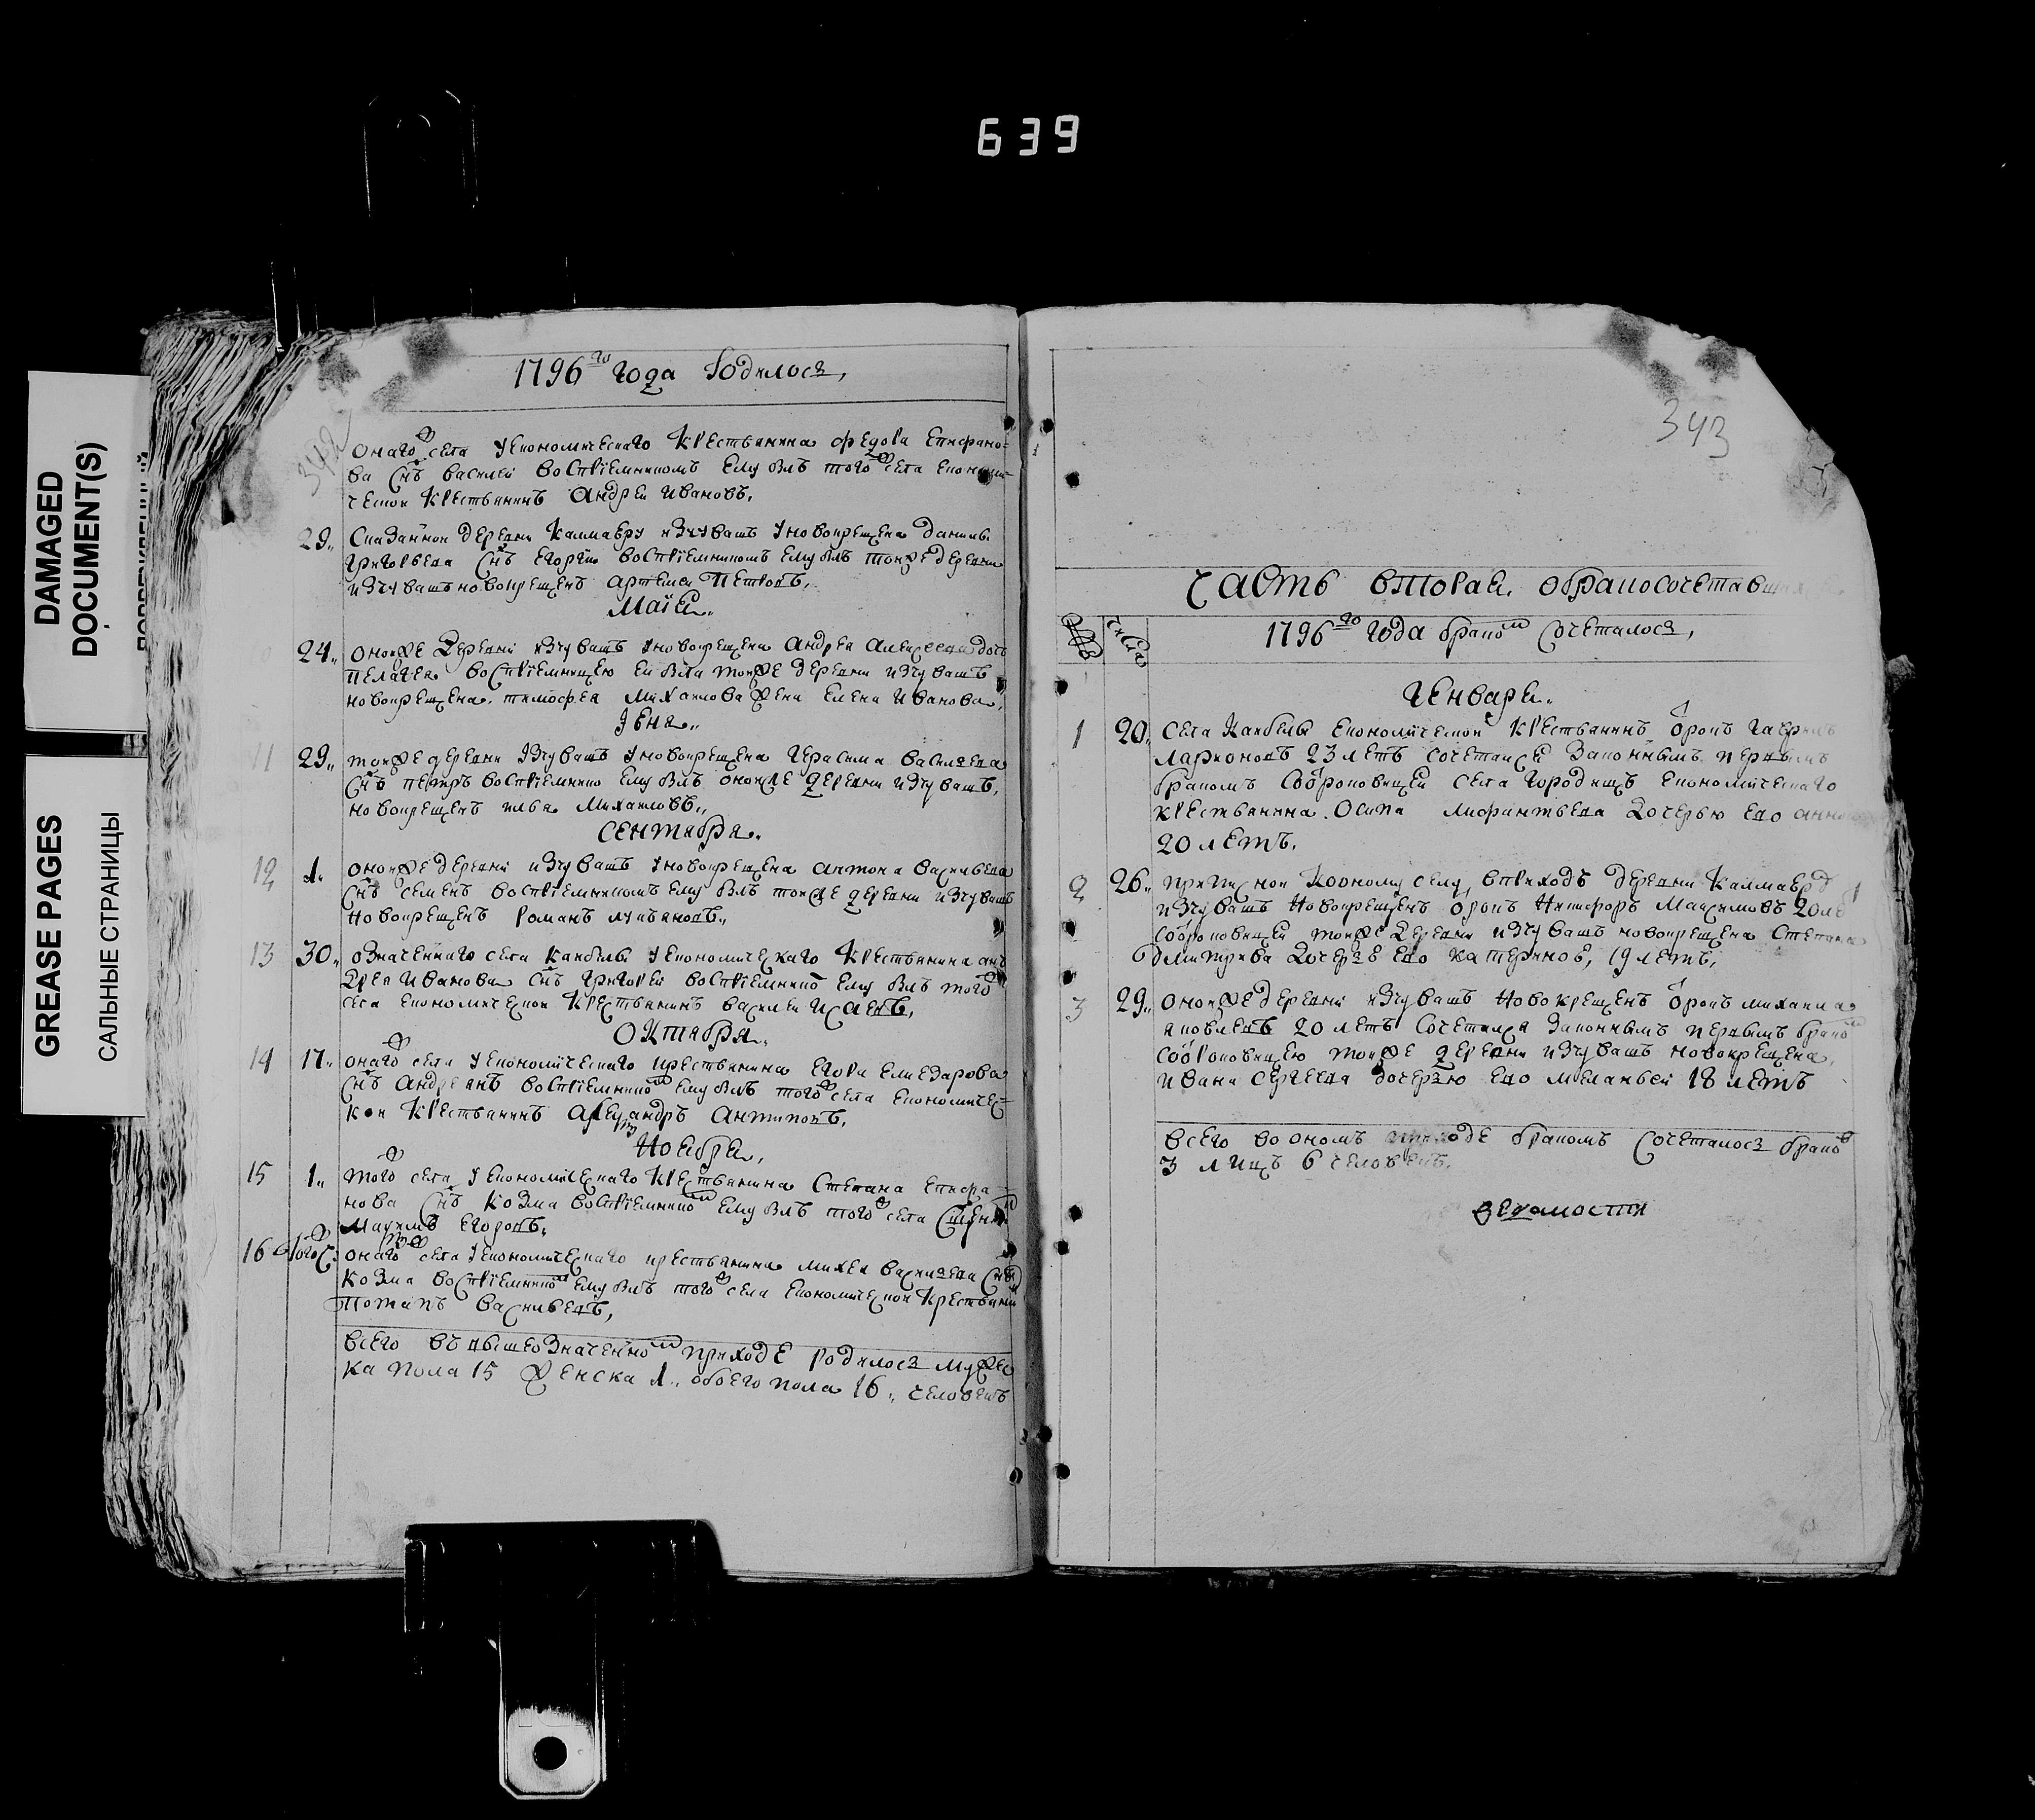 639
DAMAGED
DOCUMENT(S)
GREASE PAGES
САЛЬНЫЕ СТРАНИЦЫ
342
1796го года Родилося,
онагож села у економическаго крестьянина федора Епифано=
ва снъ василей восприемникомъ ему былъ тогож села економи=
ческой крестьянинъ андрей ивановъ.
29., Сказанной деревни изчувашъ уновокрещена данилы
григорьева снъ егоргий восприемникомъ ему былъ тояже деревни
изчувашъ новокрещенъ артемей петровъ.
Маия.
24., оноиже деревни изчувашъ уновокрещена андрея алексеева дочь
пелагея восприемницею ей была тояже деревни изчувашъ
новокрещена тимофея михаилова жена елена иванова,
Iюня.,
11 29., тояже деревни изчувашъ уновокрещена герасима васильева
снъ петръ восприемнико ему былъ оноиже деревни изчувашъ,
новокрещенъ илья михаиловъ.,
сентября.
12 1. оноиже деревни изчувашъ уновокрещена антона васильева
снъ семенъ восприемникомъ ему былъ тояже деревни изчувашъ
новокрещенъ романъ лукьяновъ.,
13 30., означеннаго села у економическаго крестьянина ан
дрея иванова снъ григорей восприемнико ему былъ тогож
села економической крестьянинъ василей исаевъ.
октября.
14 17., онагож села у економическаго крестьянина егора елиазарова
снъ андреянъ восприемником ему былъ тогож села економичес=
кой крестьянинъ александръ антиповъ.
Ноября,
15 1., тогож села у економическаго крестьянина Степана епифа=
нова снъ козма восприемником ему былъ тогож села
максимъ егоровъ.
16 онагож села у економическаго крестьянина михея васильева снъ
козма восприемником ему былъ тогож села економической крестьянин
потапъ васильевъ,
всего въ вышеозначенном приходе родилося мужес
ка пола 15 женска 1., обоего пола 16., человекъ
343
часть вторая. обракосочетавши
число
1796го года браком сочеталося,
генваря.
1 20., села економической крестьянинъ гаврилъ
ларионовъ 23 летъ сочетался законнымъ первымъ
бракомъ села городищъ економическаго
крестьянина осипа дочерью ево анн
20 летъ.
2 26., приписной коному селу в приходъ деревни
изчувашъ новокрещенъ никифоръ максимовъ 20 ле
тояже деревни изчувашъ новокрещена степана
дмитриева дочерью ево катериною, 19 летъ,
3 29., оноиже деревни изчувашъ новокрещенъ михаила
яковлевъ 20 летъ сочетался законнымъ первымъ браком
тояже деревни изчувашъ новокрещена,
ивана сергеева дочерью ево меланьей 18 летъ
всего во ономъ приходе бракомъ сочеталося браков
3 лицъ 6 человекъ.